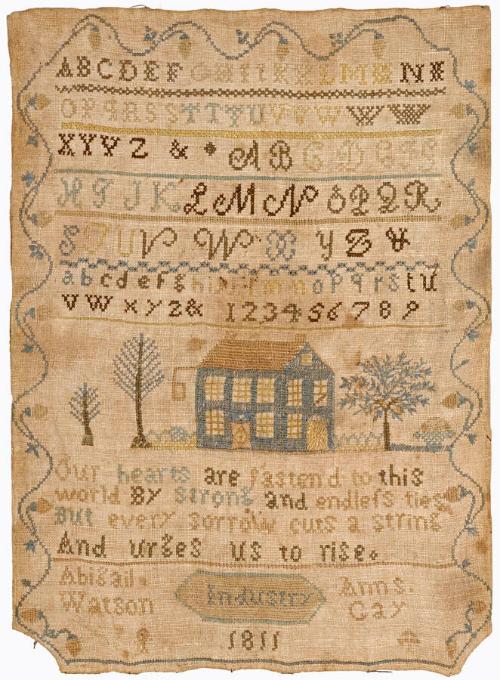 ABCDEF GHIIKKLMM NN
OPqRSSTTTUVVW WW
XYYZ & AB C D E F G
H I J K L M N O P Q R
S T U V W X Y Z &
abcdefghiklmnopqrstu
vw xyz& 123456789
Our hearts are fastend to this
world By strong and endless ties
But every sorrow cuts a string
And urges us to rise.
Abigail Watson
Industry
Ann S. Gay
1811